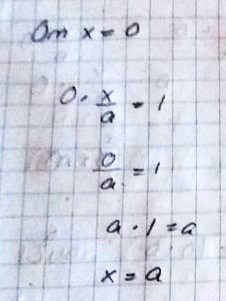 Om x = 0
0 · x/a = 1
0/a = 1
a · 1 = a
x = a